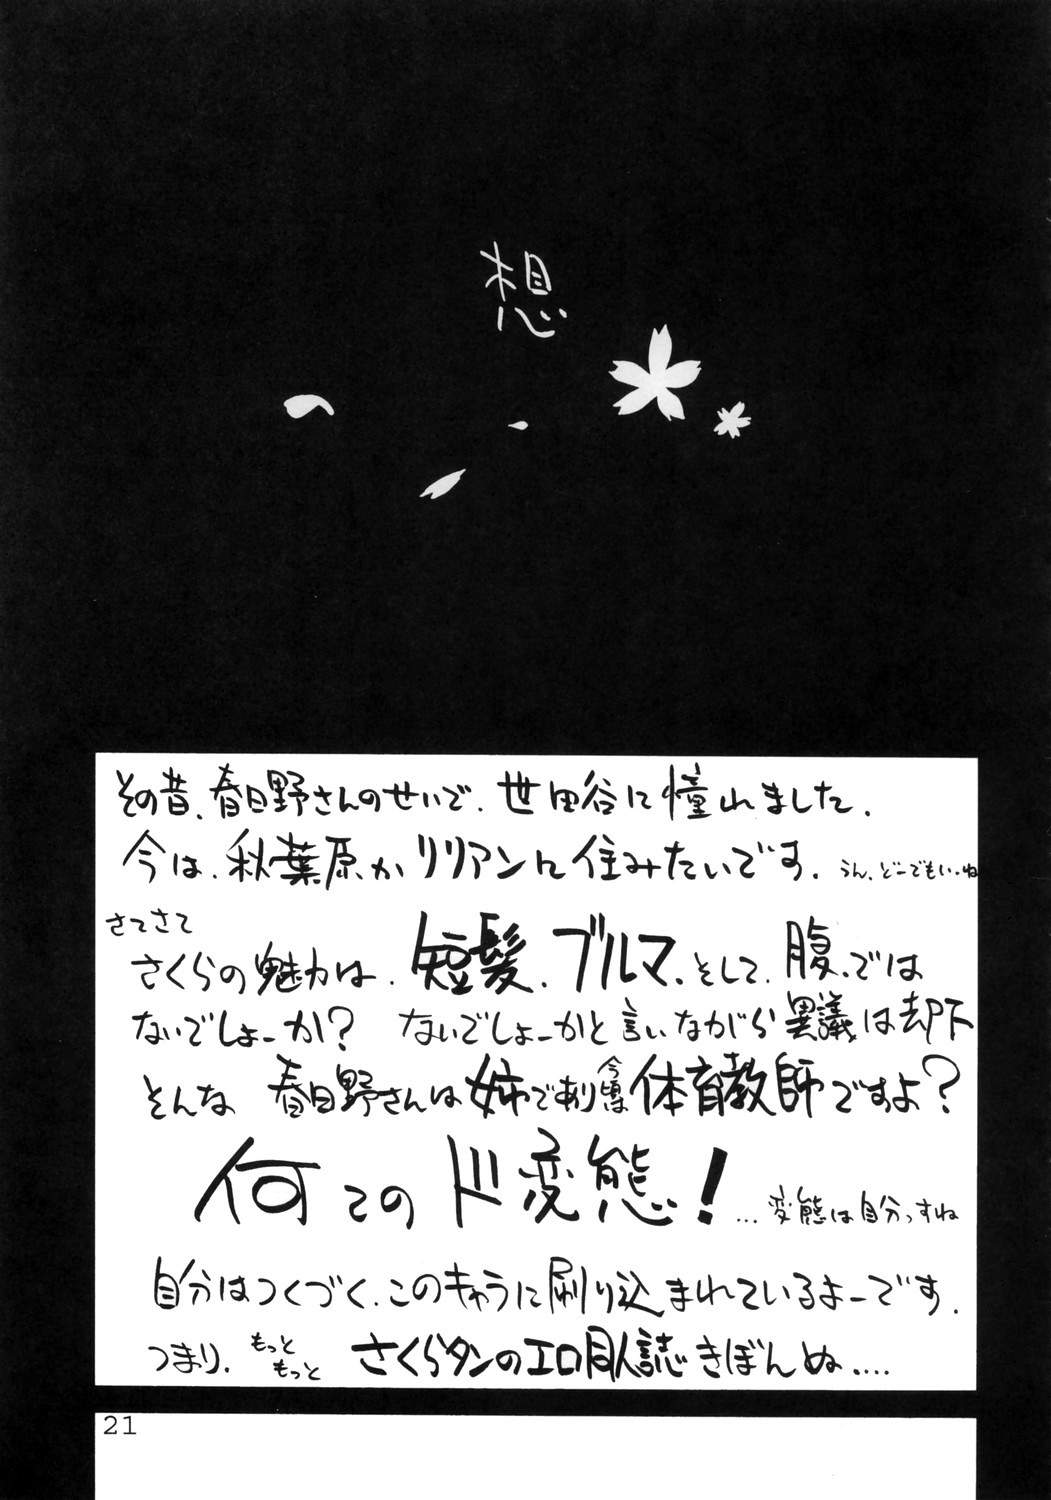 想
その昔、春日野さんのせいで、世田谷に憧れました。
今は、秋葉原かリリアンに住みたいです。うん、どーでもいーね
さてさて
さくらの魅力は、短髪、ブルマ、そして、腹、では
ないでしょーか? ないでしょーかと言いながら異議は却下
そんな 春日野さんは姉であり今は体育教師ですよ?
何てのド変態!…変態は自分っすね
自分はつくづく、このキャラに刷り込まれているよーです。
つまり、もっともっと さくらタンのエロ同人誌きぼんぬ....
21